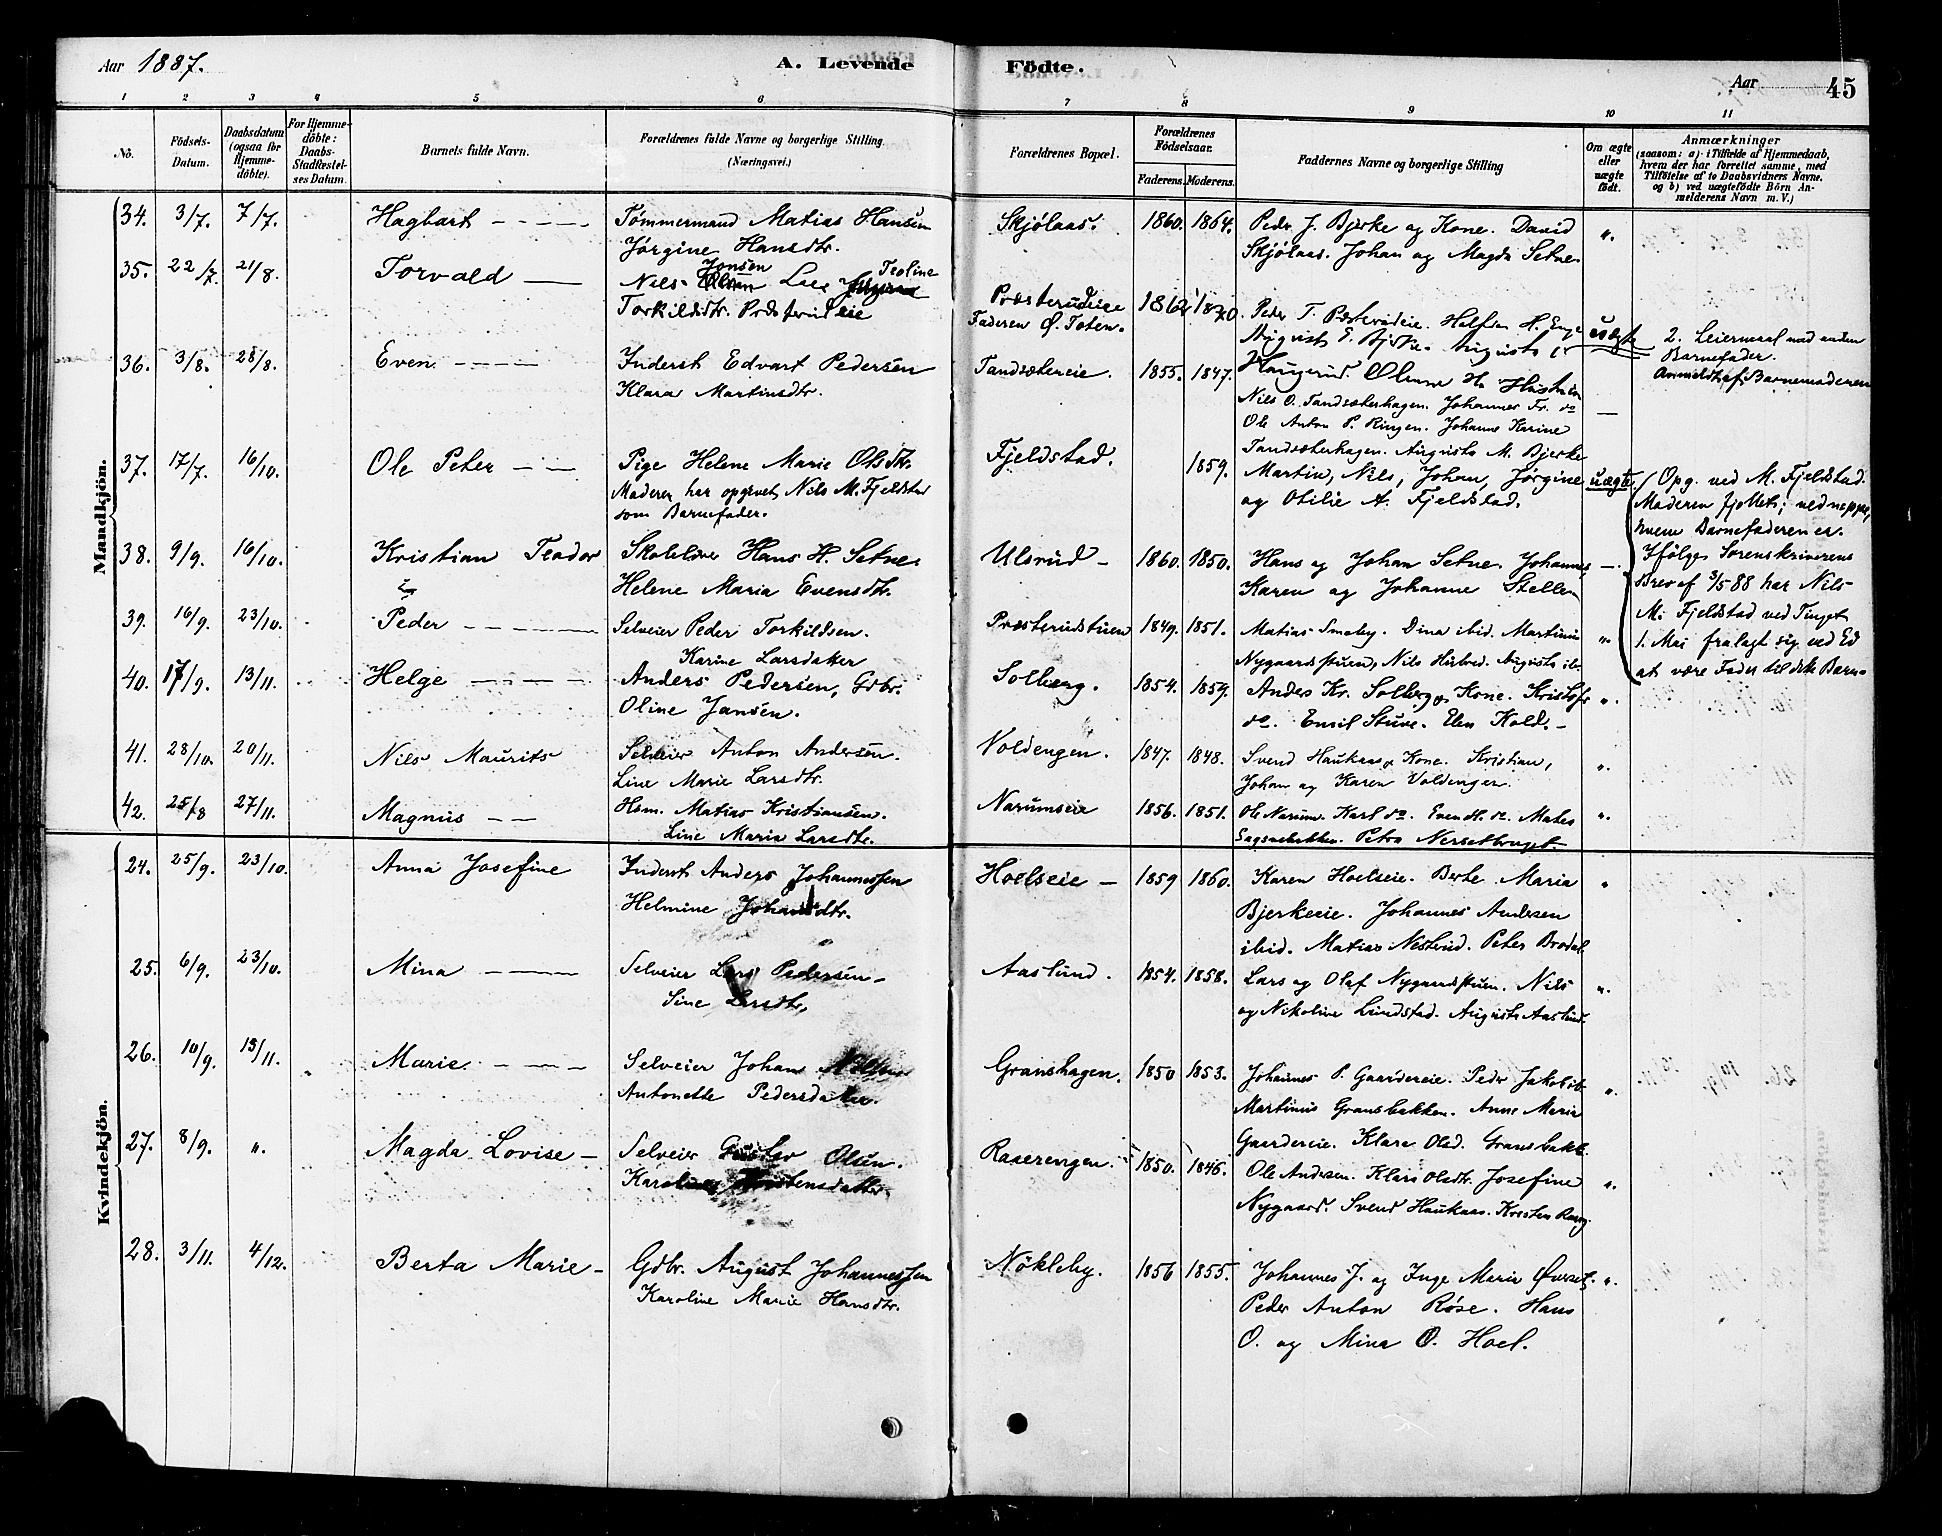 Aar 1887.
A. Levende Födte.
Aar 45
1 2 3 4 5 6 7 8 9 10 11
No.
Födsels-Datum.
Daabsdatum (ogsaa for Hjemmedöbte).
For Hjemmedöbte: Daabs-Stadfæstelses Datum.
Barnets fulde Navn.
Forældrenes fulde Navne og borgerlige Stilling. (Næringsvei.)
Forældrenes Bopæl.
Forældrenes Födselsaar.
Faderens. Moderens.
Faddernes Navne og borgerlige Stilling
Om ægte eller uægte födt.
Anmærkninger
(saasom: a) i Tilfælde af Hjemmedaab, hvem der har forrettet samme, med Tilföielse af to Daabsvidners Navne, og b) ved uægtefödte Börn Anmelderens Navn m. V.)
Mandkjön.
34. 3/7. 7/7. Hagbart Tømmermand Matias Hansen Skjølaas. 1860. 1864. Peder J. Bjerke og Kone. David ".
Jørgine Hansdtr. Skjølaas. Johan og Magda Setne.
35. 22/7. 21/8. Torvald Nils Jonsen Lee Teoline Præsterudeie 1862 1870. Peder T. Præsterudeie. Halfdan H. Enge uægte 2. Leiermaal med anden
Torkildsdtr. Præsterudeie Faderen Ø. Toten. August E. Bjerke. Augusta Barnefader.
Haugerud. Anmeldt af Barnemoderen
36. 3/8. 28/8. Even Inderst Edvart Pedersen Tandsætereie. 1855. 1847. Nils O. Tandsæterhagen. Johannes Fr. do
Klara Martinsdtr. Ole Anton P. Ringen. Johanne Karine
Tandsæterhagen. Augusta M. Bjerke
37. 17/7. 16/10. Ole Peter Pige Helene Marie Olsdtr. Fjeldstad. 1859. Martin, Nils, Johan, Jørgine uægte. Opg. ved M. Fjeldstad.
Moderen har opgivet Nils M. Fjeldstad og Otilie A. Fjeldstad. Moderen fjollet; ved neppe,
som Barnefader. hvem Barnefaderen er.
38. 9/9. 16/10. Kristian Teodor Skolelærer Hans H. Setne. Ulsrud 1860. 1850. Hans og Johan Setne. Johannes, Ifølge Sorenskriverens
Helene Maria Evensdtr. Karen og Johanne Stellen Brev af 3/5 88 har Nils
39. 16/9. 23/10. Peder Selveier Peder Torkildsen. Præsterudstuen 1849. 1851. Matias Smeby. Dina ibid. Martinus " M. Fjeldstad ved Tinget
Karine Larsdatter Nygaardsstuen, Nils Augusta 1. Mai fralagt sig ved Ed
40. 17/9. 13/11. Helge Anders Pedersen, Gdbr. Solberg. 1854. 1859. Anders Kr. Solberg og Kone. Kristoffer ". at være Fader til dette Barn.
Oline Jansen. do. Emil Stuve. Elen Kold.
41. 28/10. 20/11. Nils Maurits Selveier Anton Andersen. Voldengen. 1847. 1848. Svend Haukaas og Kone. Kristian, ".
Line Marie Larsdtr. Johan og Karen Voldengen.
42. 25/8 27/11. Magnus Hsm. Matias Kristiansen. Narumseie 1856. 1851. Ole Narum. Karl do. Even H. do. Mates ".
Line Maria Larsdtr. Petra
Kvindekjön.
24. 25/9. 23/10. Anna Josefine Inderst Anders Johannessen Hoelseie 1859 1860. Karen Hoelseie. Berte Maria "
Helmine Johansdtr. Bjerkeeie. Johannes Andersen
ibid. Matias Peter Brodal
25. 6/9. 23/10. Mina Selveier Lars Pedersen Aaslund. 1854. 1858. Lars og Olaf Nygaardsstuen. Nils ".
Sine Larsdtr. og Nikoline Lundstad. Augusta Aaslund.
26. 10/9. 13/11. Marie Selveier Johan Granshagen. 1850 1853. Johannes P. Gaardereie. Peder Jakob ".
Antonette Pedersdatter. Martinus Gransbakken. Anne Maria
Gaardereie. Klara Olsd. Gransbakk.
27. 8/9. ". Magda Lovise Selveier Gustav Olsen. Raserengen. 1850. 1846. Ole Andersen. Klara Olsdtr. Josefine ".
Karoline Nygaard. Svend Haukaas. Kristen
28. 3/11. 4/12. Berta Marie Gdbr. August Johannessen Nökleby. 1856 1855. Johannes J. og Inge Maria Øverset ".
Karoline Marie Hansdtr. Peder Anton Røse. Hans
O. og Mina O. Hoel.